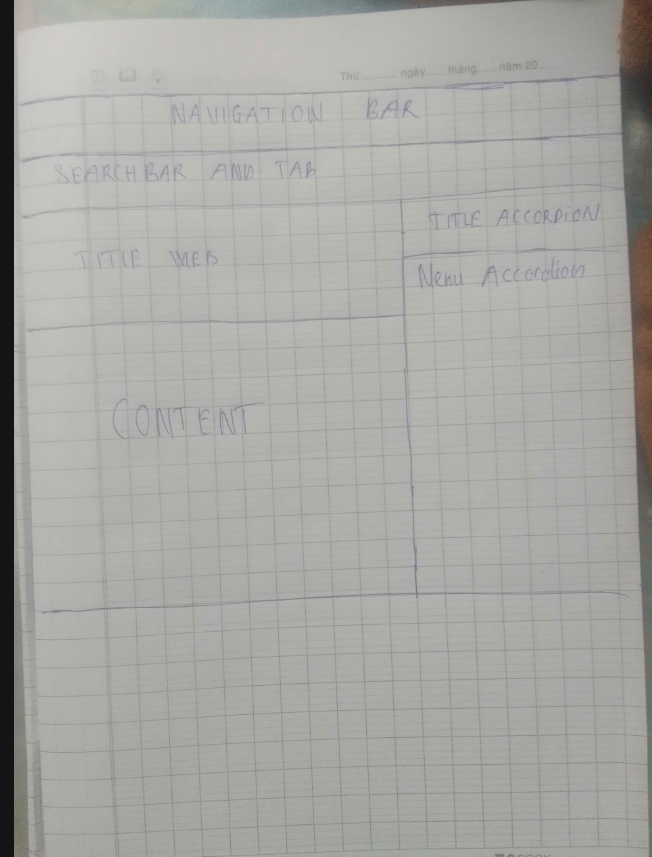 Thứ ......... ngày ..... tháng ..... năm 20 .....
NAVIGATION BAR
SEARCHBAR AND TAB
TITLE ACCORDION
TITLE WEB
Menu Accordion
CONTENT